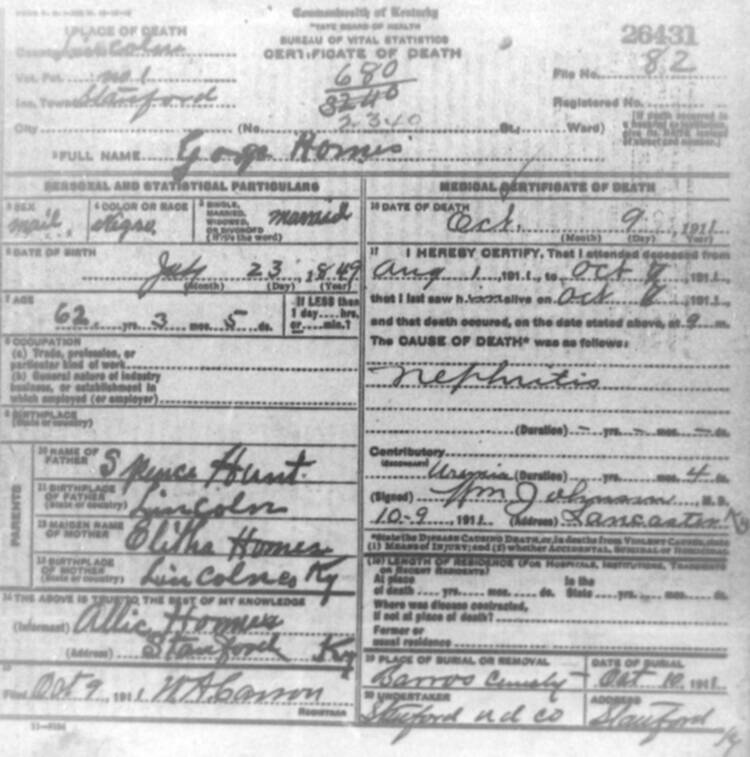 Commonwealth of Kentucky
STATE BOARD OF HEALTH
BUREAU OF VITAL STATISTICS
CERTIFICATE OF DEATH
1 PLACE OF DEATH
County Lincoln
Vot. Pct. no. 1
Inc. Town Stanford
City (No. St.; Ward)
680
3240
2340
26431
File No. 82
Registered No.
2 FULL NAME Gorge Homes
PERSONAL AND STATISTICAL PARTICULARS
3 SEX mail
4 COLOR OR RACE Negro
5 SINGLE, MARRIED, WIDOWED OR DIVORCED (Write the word) married
6 DATE OF BIRTH July 23, 1849
(Month) (Day) (Year)
7 AGE 62 yrs. 3 mos. 5 ds.
If LESS than 1 day hrs. or min.?
8 OCCUPATION
(a) Trade, profession, or
particular kind of work
(b) General nature of industry
business, or establishment in
which employed (or employer)
9 BIRTHPLACE
(State or country)
PARENTS
10 NAME OF FATHER Spence Hunt.
11 BIRTHPLACE OF FATHER (State or country) Lincoln
12 MAIDEN NAME OF MOTHER Elitha Homes
13 BIRTHPLACE OF MOTHER (State or country) Lincolnes Ky
14 THE ABOVE IS TRUE TO THE BEST OF MY KNOWLEDGE
(Informant) Allie Hommes
(Address) Stanford Ky
15
Filed Oct 9 1911 W A Carson
REGISTRAR
MEDICAL CERTIFICATE OF DEATH
16 DATE OF DEATH Oct. 9, 1911
(Month) (Day) (Year)
17 I HEREBY CERTIFY, That I attended deceased from
Aug 1, 1911, to Oct, 191
that I last saw h im alive on Oct, 191
and that death occured, on the date stated above, at 9 m.
The CAUSE OF DEATH* was as follows:
Nephritis
(Duration) – yrs. – mos. – ds.
Contributory
(SECONDARY) Uremia (Duration) yrs. mos. 4 ds.
(Signed) Wm Johnson M. D.
10-9 1911 (Address) Lancaster Ky
*State the DISEASE CAUSING DEATH, or, in deaths from VIOLENT CAUSES, state
(1) MEANS OF INJURY; and (2) whether ACCIDENTAL, SUICIDAL or HOMICIDAL
18 LENGTH OF RESIDENCE (FOR HOSPITALS, INSTITUTIONS, TRANSIENTS
OR RECENT RESIDENTS)
At place of death yrs. mos. ds. In the State yrs. mos. ds.
Where was disease contracted,
if not at place of death?
Former or
usual residence
19 PLACE OF BURIAL OR REMOVAL
DATE OF BURIAL
Oct 10, 1911
20 UNDERTAKER
Stanford u d co
ADDRESS
Stanford
Ky